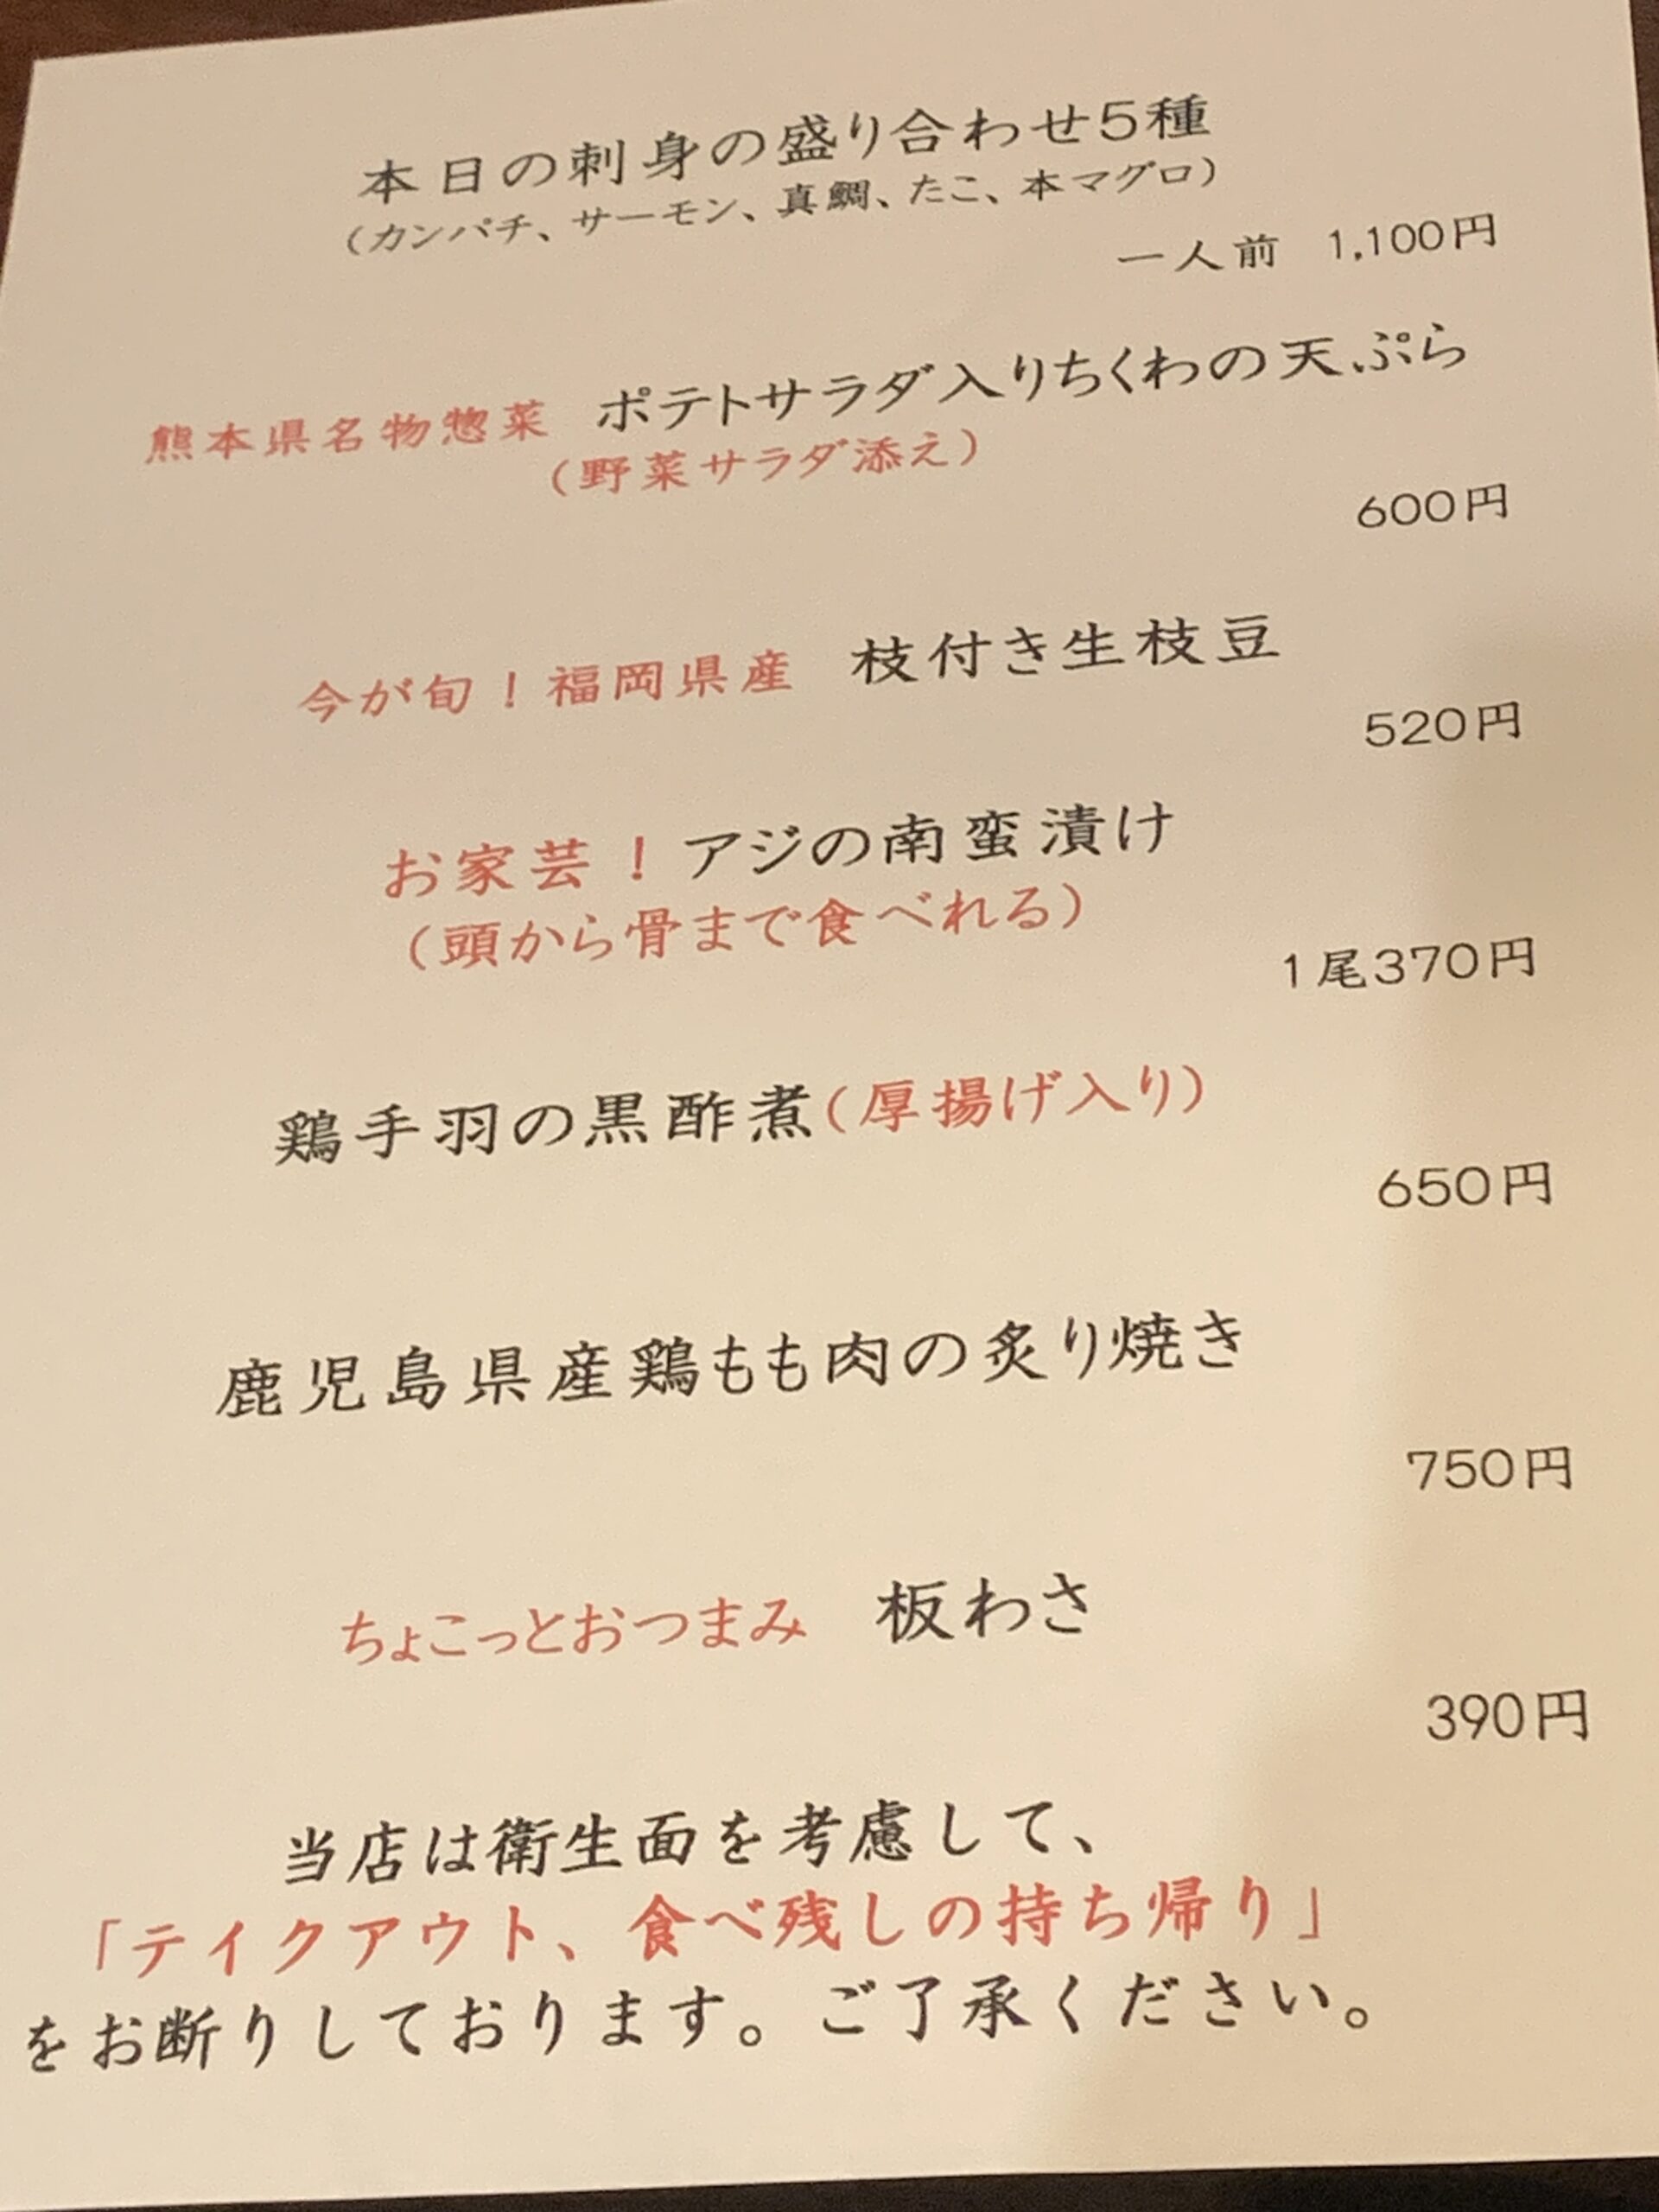 本日の刺身の盛り合わせ5種
（カンパチ、サーモン、真鯛、たこ、本マグロ）
一人前 1,100円
熊本県名物惣菜 ポテトサラダ入りちくわの天ぷら
（野菜サラダ添え）
600円
今が旬！福岡県産 枝付き生枝豆
520円
お家芸！アジの南蛮漬け
（頭から骨まで食べれる）
1尾370円
鶏手羽の黒酢煮（厚揚げ入り）
650円
鹿児島県産鶏もも肉の炙り焼き
750円
ちょこっとおつまみ 板わさ
390円
当店は衛生面を考慮して、
「テイクアウト、食べ残しの持ち帰り」
をお断りしております。ご了承ください。